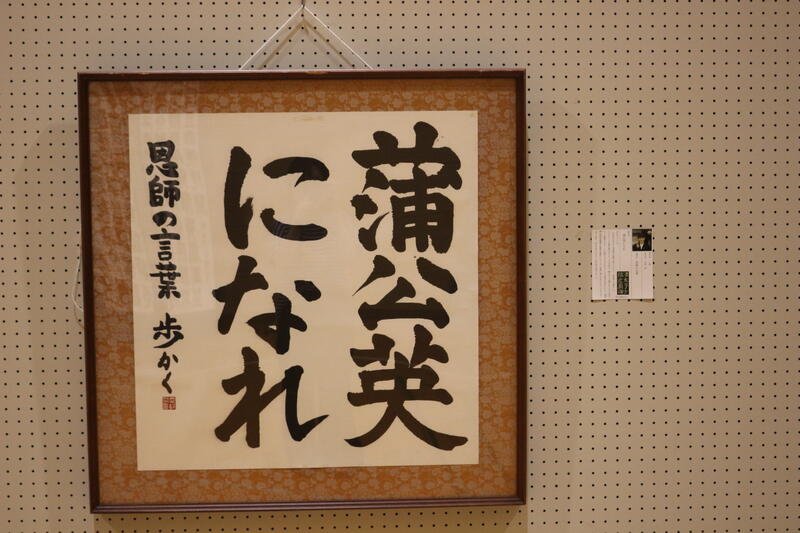 蒲公英
になれ
恩師の言葉 歩かく